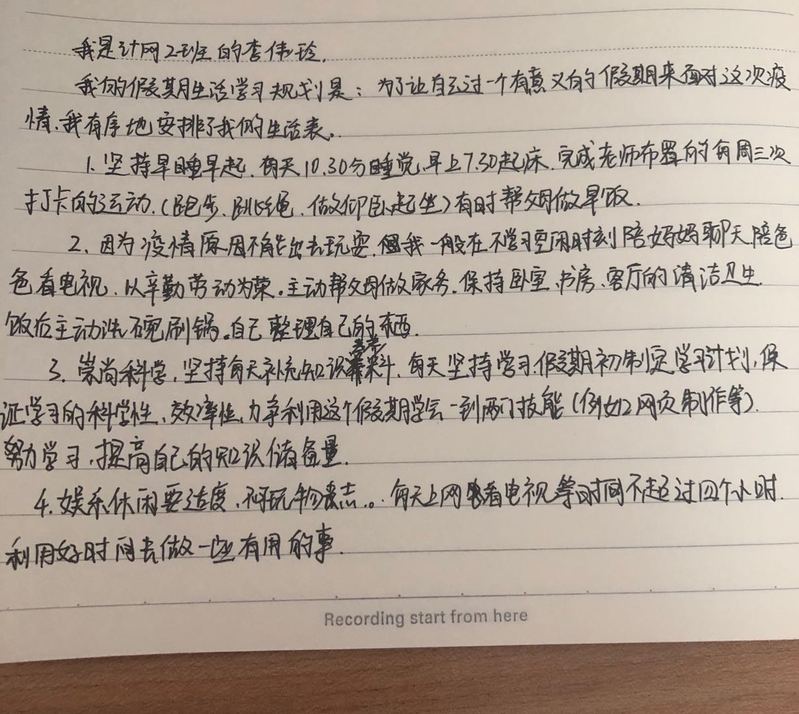 我是计网2班的李伟玲.
我的假期生活学习规划是：为了让自己过一个有意义的假期来面对这次疫
情.我有序地安排了我的生活表.
1.坚持早睡早起.每天10.30分睡觉,早上7.30起床.完成老师布置的每周三次
打卡的运动.(跑步、跳绳、做仰卧起坐)有时帮父母做早饭.
2.因为疫情原因不能出去玩耍.但我一般在不学习空闲时刻陪妈妈聊天陪爸
爸看电视.以辛勤劳动为荣.主动帮父母做家务.保持卧室、书房、客厅的清洁卫生.
饭后主动洗碗刷锅.自己整理自己的东西.
3.崇尚科学,坚持每天补充知识养料.每天坚持学习.假期初制定学习计划,保
证学习的科学性、效率性.力争利用这个假期学会一到两门技能(例如网页制作等).
努力学习,提高自己的知识储备量.
4.娱乐休闲要适度,不可玩物丧志。.每天上网看电视等时间不超过四个小时.
利用好时间去做一些有用的事.
Recording start from here